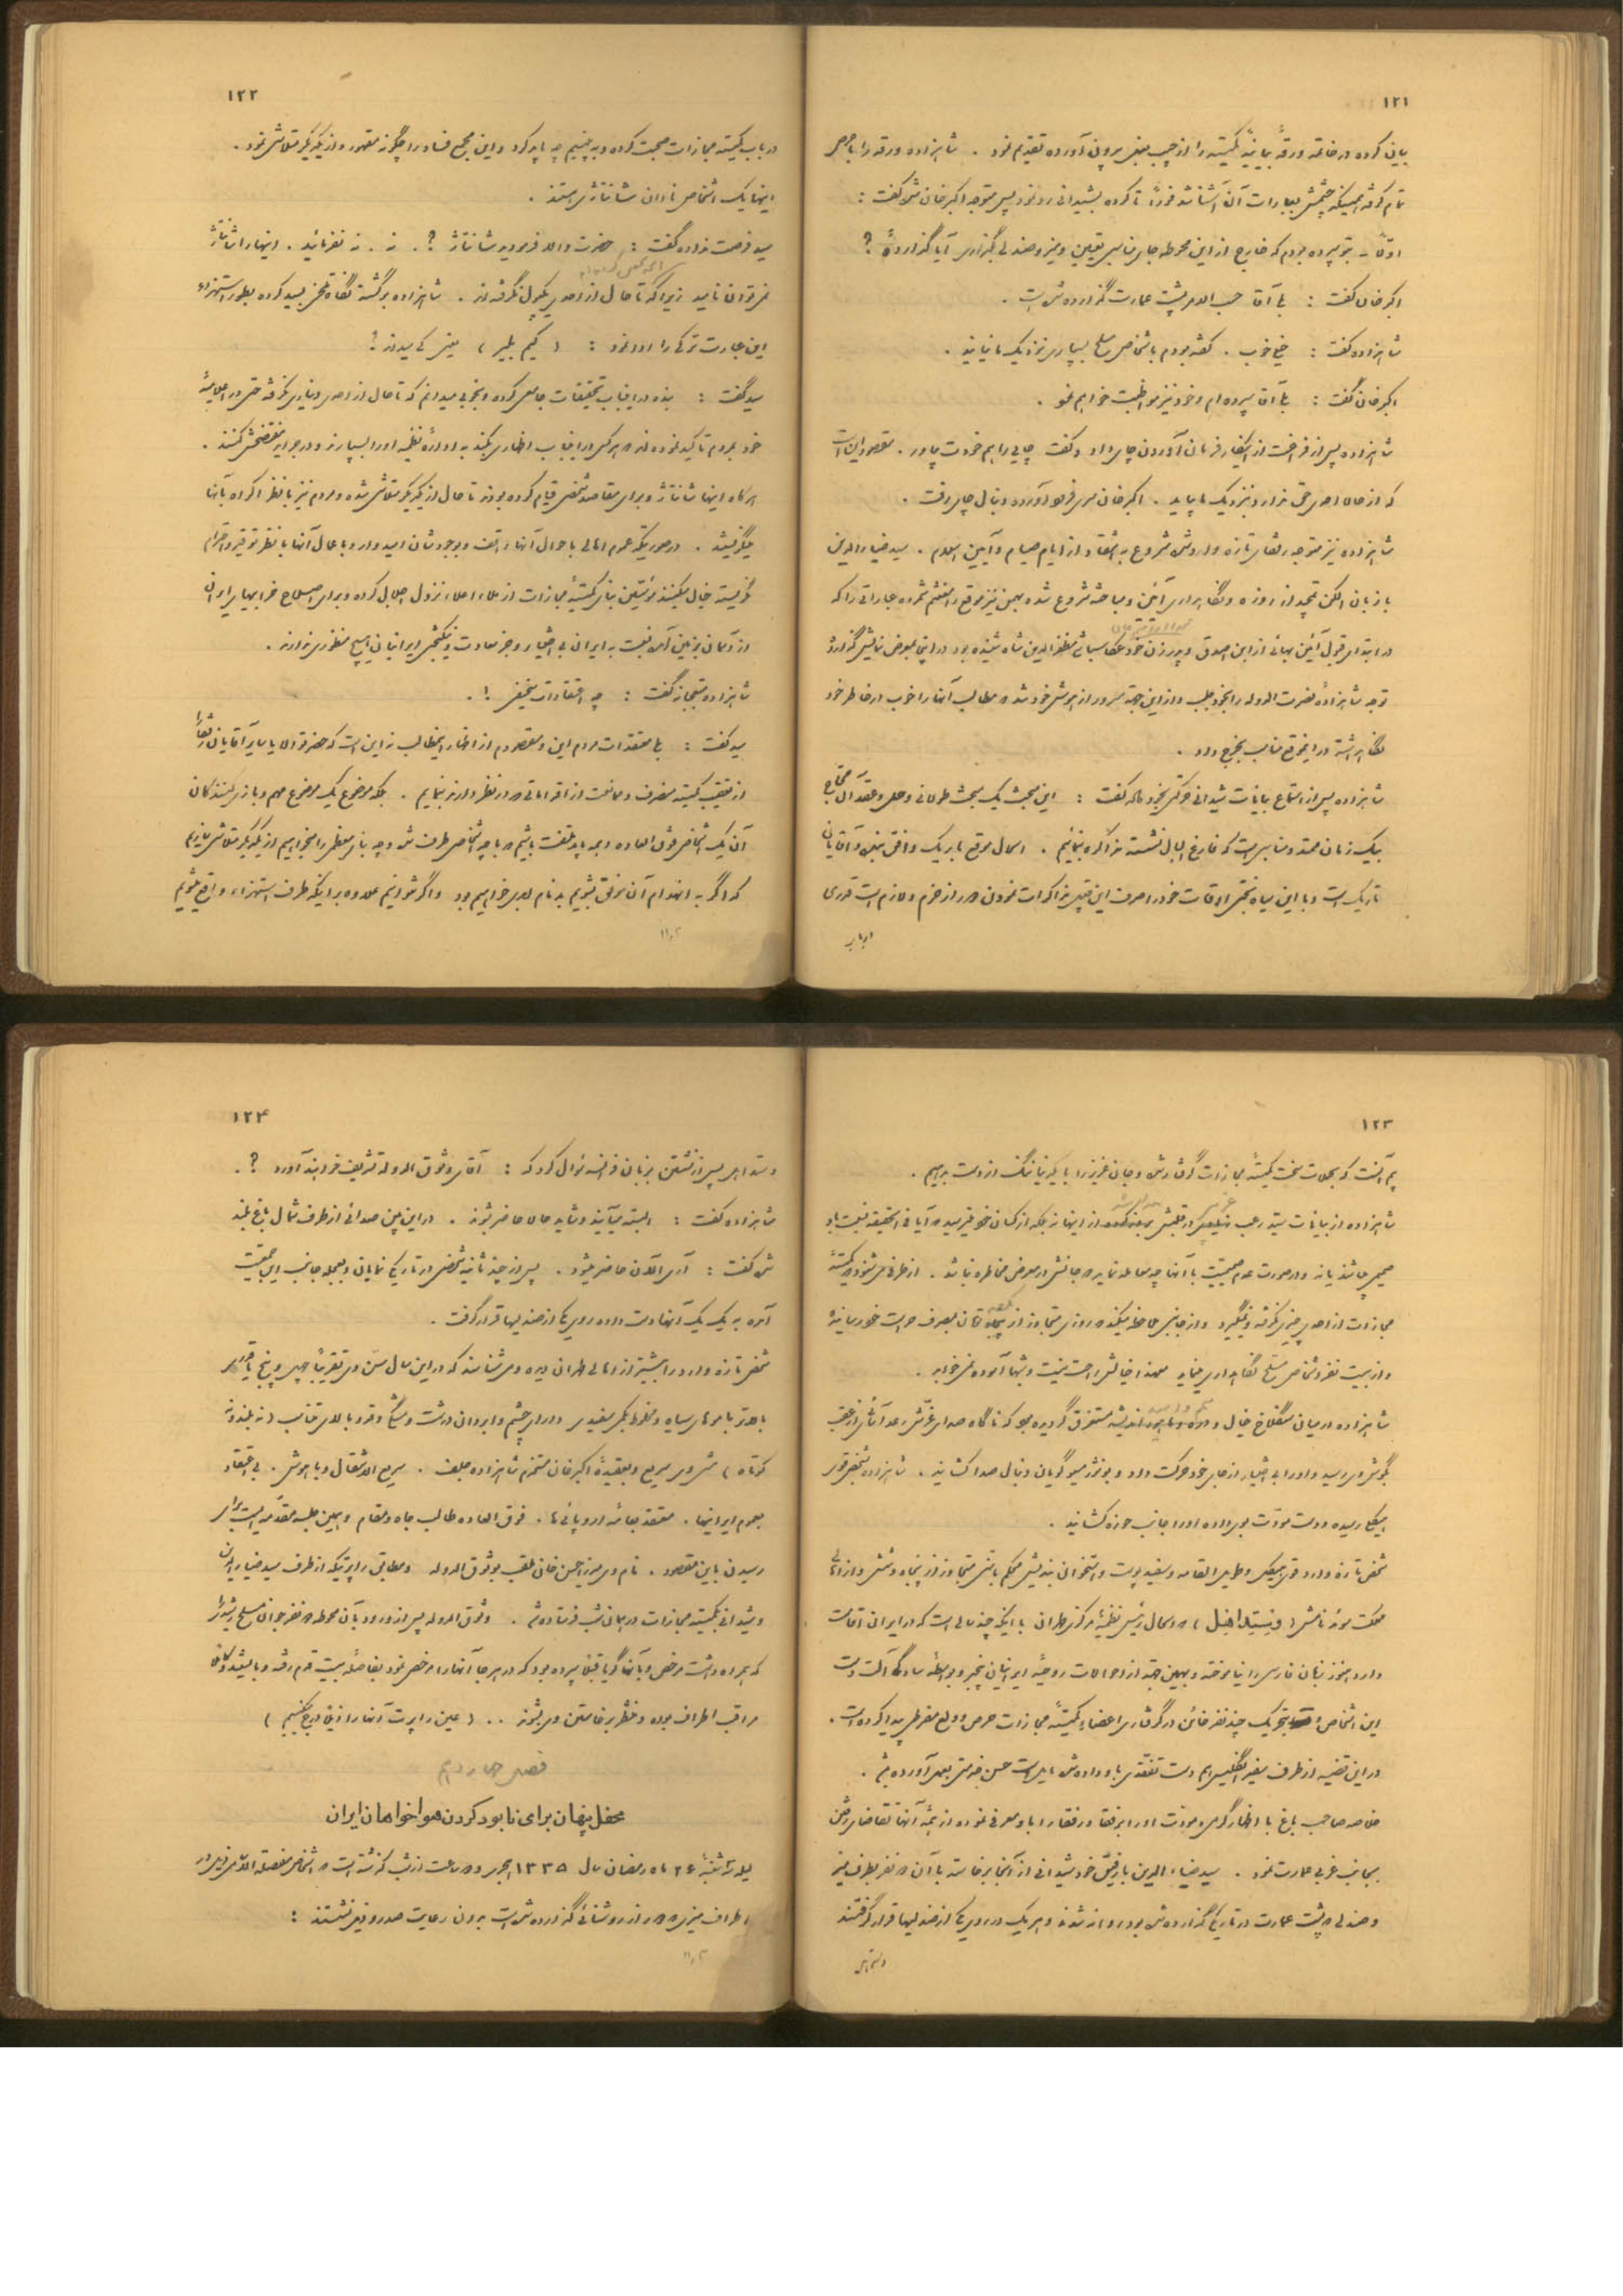 ۱۲۱
بیان کرده در خاتمه ورقهٔ بیانیهٔ کمیته را از جیب بغل بیرون آورده تقدیم نمود . شاهزاده ورقه را با حرص
تمام گرفته همینکه چشمش بعبارات آن آشنا شد فوراً تا کرده بشیدانی رد نمود پس متوجه اکبرخان شده گفت :
اولاً - بتو سپرده بودم که خارج از این محوطه جای مناسبی تعیین و میز و صندلی بگذاری آیا گذارده‌ای ؟
اکبرخان گفت : بلی آقا حسب الامر پشت عمارت گذارده شده است .
شاهزاده گفت : خیلی خوب . گفته بودم باشخاص مسلح بسپاری نزدیک ما نیایند .
اکبرخان گفت : بلی آقا سپرده‌ام و خود نیز مواظبت خواهم نمود .
شاهزاده پس از فراغت از اینکار فرمان آوردن چای داد و گفت چایی را هم خودت بیاور . مقصود این است
که از حالا احدی حق ندارد نزدیک ما بیاید . اکبرخان سری فرود آورده دنبال چای رفت .
شاهزاده نیز متوجه رفقای تازه وارد شده شروع به انتقاد از ایام صیام و آیین اسلام . سید ضیاءالدین
با زبان الکن تمجید از روزه و نگاهداری آئین و مباحثه شروع شد و بهمن نیز موقع را مغتنم شمرده عباراتی را که
در ابتدای قبول آئین بهائی از ابن اصدق و پدر زن خود عکاسباشی مظفرالدین شاه شنیده بود در اینجا بمعرض نمایش گذارد
توجه شاهزاده نصرت الدوله را بخود جلب و از این جهة مسرور از هوش خود شده مطالب آنها را خوب در خاطر خود
نگاهداشته در اینموقع مناسب بخرج داد .
شاهزاده پس از استماع بیانات شیدانی حرکتی بخود داده گفت : این مبحث یک مبحث طولانی و حل و عقد آن محتاج
بیک زمان ممتد و مناسبی است که فارغ البال نشسته مذاکره بنمائیم . امسال موقع باریک و افق نیز و آقایانی
تاریک است و با این سیاه بختی اوقات خود را صرف این قبیل مذاکرات نمودن دور از حزم و لازم است قدری
در باب
۱۲۲
در باب کمیته مجازات صحبت کرده و به بینیم چه باید کرد و این مجمع فساد را چگونه مقهور و از یکدیگر متلاشی نمود .
اینها یک اشخاص نادان شانتاژی هستند .
سید فرصت نداده گفت : حضرت والا فرمودید شانتاژ ؟ . نه . نه نفرمائید . اینها را شانتاژ
نمیتوان نامید زیرا که تا حال از احدی یکپول نگرفته‌اند . شاهزاده برگشته نگاه تمسخر بسید کرده بطور استهزاء
این عبارت ترکی را ادا نمود : ( کیم بلیر ) یعنی کی میداند ؟
سید گفت : بنده در اینباب تحقیقات جامعی کرده و بخوبی میدانم که تا حال از احدی دیناری نگرفته حتی در اعلامیهٔ
خود بمردم تأکید نموده‌اند هر کس در اینباب اظهاری بکند به ادارهٔ نظمیه او را بسپارند و در جراید مفتضحش کنند .
هرگاه اینها شانتاژ و برای مقاصد شخصی قیام کرده بودند تا حال از یکدیگر متلاشی شده و مردم نیز با نظر اکراه بآنها
مینگریستند . در صورتیکه عموم اهالی باحوال آنها واقف و بوجودشان امیدوار و باعمال آنها با نظر توقیر و احترام
نگریسته خیال میکنند مؤسسین بنای کمیتهٔ مجازات از ملاء اعلاء نزول اجلال کرده و برای اصلاح خرابیهای ایران
از آسمان بزمین آمده نسبت به ایران بی اختیار و جز سعادت و نیکبختی ایرانیان هیچ منظوری ندارند .
شاهزاده متعجبانه گفت : چه اعتقادات سخیفی !.
سید گفت : بلی معتقدات مردم این و مقصودم از اظهار اینمطالب نه این است که حضرت والا یا سایر آقایان رفقا را
از تعقیب کمیته منصرف و ممانعت از اقداماتی که در نظر دارند بنمایم . بلکه موضوع یک موضوع مهم و بازی کنندگان
آن یک اشخاص فوق العاده و همه باید ملتفت باشیم که با چه اشخاصی طرف شده و چه بنای معظمی را میخواهیم از یکدیگر متلاشی سازیم
که اگر به انهدام آن موفق بشویم بد نام ابدی خواهیم بود و اگر نتوانیم علاوه بر اینکه طرف استهزاء واقع میشویم
۱۱٫۲
۱۲۳
بیم آنست که بچنگال سخت کمیتهٔ مجازات گرفتار شده و جان عزیز را با یکدنیا ننگ از دست بدهیم .
شاهزاده از بیانات سید رعب در قلبش از اینها نه بلکه از کسان خود میترسید که آیا فی الحقیقه نسبت باو
صمیمی هستند یا نه و در صورت عدم صمیمیت با آنها چه معامله نماید که جانش در معرض مخاطره نباشد . از طرفی میشنود که کمیتهٔ
مجازات از احدی چیزی نگرفته و نمیگیرد و از جانبی ملاحظه میکند که روزی متجاوز از تومان بمصرف حراست خود رسانیده
و از بیست نفر اشخاص مسلح نگاهداری مینماید معهذا خیالش راحت نیست و شبها آسوده نمیخوابد .
شاهزاده در میان سنگلاخ خیال و اندیشه مستغرق گردیده بود که ناگاه صدای غرّش رعد آسائی از عقب
بگوش وی رسید و او را بی اختیار از جای خود حرکت داد و بونژور مسیو گویان دنبال صدا کشانید . شاهزاده بشخص قوی
هیکلی رسیده دست مودّت بوی داده او را جانب حوزه کشانید .
شخص تازه وارد قوی هیکل و طویل القامه و سفید پوست و استخوان بندیش محکم با سن متجاوز از پنجاه و شش و از اهالی
مملکت سوئد نامش ( وستداهل ) که امسال رئیس نظمیهٔ مرکزی طهران با اینکه چند سالی است که در ایران اقامت
دارد هنوز زبان فارسی را نیاموخته و بهمین جهة از احوالات روحیهٔ ایرانیان بیخبر و بواسطهٔ سادگی آلت دست
این اشخاص بتحریک چند نفر خائن در گرفتاری اعضای کمیتهٔ مجازات حرص و ولع مفرطی پیدا کرده است .
در این قضیه از طرف سفیر انگلیس هم دست تفقدی باو داده شده بایست حسن خدمتی بعمل آورده باشد .
خلاصه صاحب باغ با اظهار گرمی و مودّت او را برفقا و رفقا را باو معرفی نموده از همهٔ آنها تقاضای رفتن
بجانب غربی عمارت نمود . سید ضیاء الدین با رفیق خود شیدانی از آنجا برخاسته با آن دو نفر بطرف میز
و صندلی که پشت عمارت در تاریکی گذارده شده بود روانه شدند و هر یک در روی یکی از صندلیها قرار گرفتند
وستداهل
۱۲۴
وستداهل پس از نشستن بزبان فرانسه سؤال کرد که : آقای وثوق الدوله تشریف خواهند آورد ؟ .
شاهزاده گفت : البته میآیند و شاید حالا حاضر بشوند . در این بین صدائی از طرف شمال باغ بلند
شده گفت : آری الآن حاضر میشود . پس از چند ثانیه شخصی در تاریکی نمایان و بعجله جانب این جمعیت
آمده به یک یک آنها دست داده روی یکی از صندلیها قرار گرفت .
شخص تازه وارد را بیشتر از اهالی طهران دیده و می شناسند که در این سال سن وی تقریباً چهل و پنج یا قدری
بالاتر با موهای سیاه و مخلوط بکمی سفیدی دارای چشم و ابروان درشت و مشکی و قد و بالای متناسب ( نه بلند و نه
کوتاه ) مشروب سریع و بعقیدهٔ اکبرخان مستخدم شاهزاده جلف . سریع الانتقال و باهوش . بی اعتقاد
بعموم ایرانیها . معتقد بعامهٔ اروپائی‌ها . فوق العاده طالب جاه و مقام و همین جلسه مقدمه ایست برای
رسیدن باین مقصود . نام وی میرزا حسن خان ملقب بوثوق الدوله و مطابق راپرتیکه از طرف سید ضیاء الدین
و شیدانی بکمیته مجازات در همان شب فرستاده شد . وثوق الدوله پس از ورود بآن محوطه دو نفر جوان مسلح رشیدی را
که همراه داشت مرخص و بآنها گویا قبلاً سپرده بود که در هر جا آنها را مرخص نمود بفاصلهٔ بیست قدم رفته و بایستند و کاملاً
مراقب اطراف بوده و منتظر برخاستن وی بشوند .. ( عین راپرت آنها را ذیلاً درج میکنیم )
فصل چهاردهم
محفل پنهان برای نابود کردن هواخواهان ایران
لیلهٔ سه شنبهٔ ۲۶ ماه رمضان سال ۱۳۳۵ هجری دو ساعت از شب گذشته است که اشخاص مفصلة الاسامی ذیل در
اطراف میزی که دور از روشنائی گذارده شده است بدون رعایت صدر و ذیل نشستند :
۱۱٫۲